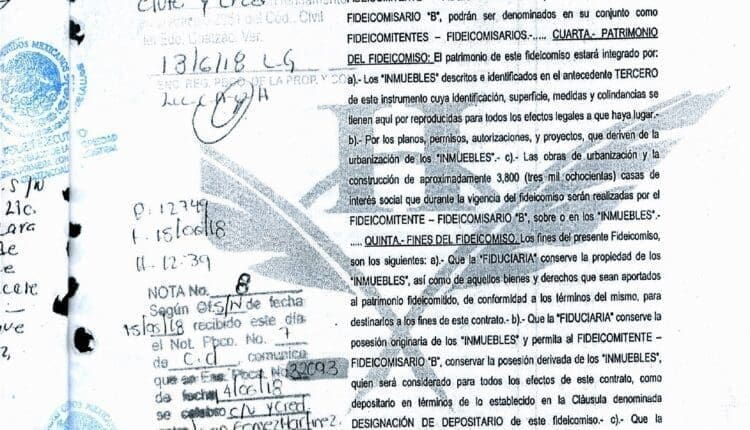 Civil y Cred
2951 del Cód. Civil
en Edo. Coatzac. Ver.
13/6/18 LG
ENC. REG. PBCO DE LA PROP. Y CO
P. 12749
F. 15/06/18
H. 12:39
NOTA No. 8
Según Of. S/N de fecha
15/05/18 recibido este día
el Not. Pbco. No. 7
de C.d , comunico
que en Esc. Pbca. No. 32093
de fecha 14/06/18
se celebro C/V y Cred.
Gomez Martinez.
S/N
Lic.
ara
de
e
FIDEICOMISARIO "B", podrán ser denominados en su conjunto como
FIDEICOMITENTES – FIDEICOMISARIOS.-..... CUARTA.- PATRIMONIO
DEL FIDEICOMISO: El patrimonio de este fideicomiso estará integrado por:
a).- Los "INMUEBLES" descritos e identificados en el antecedente TERCERO
de este instrumento cuya identificación, superficie, medidas y colindancias se
tienen aquí por reproducidas para todos los efectos legales a que haya lugar.-
b).- Por los planos, permisos, autorizaciones, y proyectos, que deriven de la
urbanización de los "INMUEBLES".- c).- Las obras de urbanización y la
construcción de aproximadamente 3,800 (tres mil ochocientas) casas de
interés social que durante la vigencia del fideicomiso serán realizadas por el
FIDEICOMITENTE – FIDEICOMISARIO "B", sobre o en los "INMUEBLES".-
..... QUINTA.- FINES DEL FIDEICOMISO. Los fines del presente Fideicomiso,
son los siguientes: a).- Que la "FIDUCIARIA" conserve la propiedad de los
"INMUEBLES", así como de aquellos bienes y derechos que sean aportados
al patrimonio fideicomitido, de conformidad a los términos del mismo, para
destinarlos a los fines de este contrato.- b).- Que la "FIDUCIARIA" conserve la
posesión originaria de los "INMUEBLES" y permita al FIDEICOMITENTE –
FIDEICOMISARIO "B", conservar la posesión derivada de los "INMUEBLES",
quien será considerado para todos los efectos de este contrato, como
depositario en términos de lo establecido en la Cláusula denominada
DESIGNACIÓN DE DEPOSITARIO de este fideicomiso.- c).- Que la